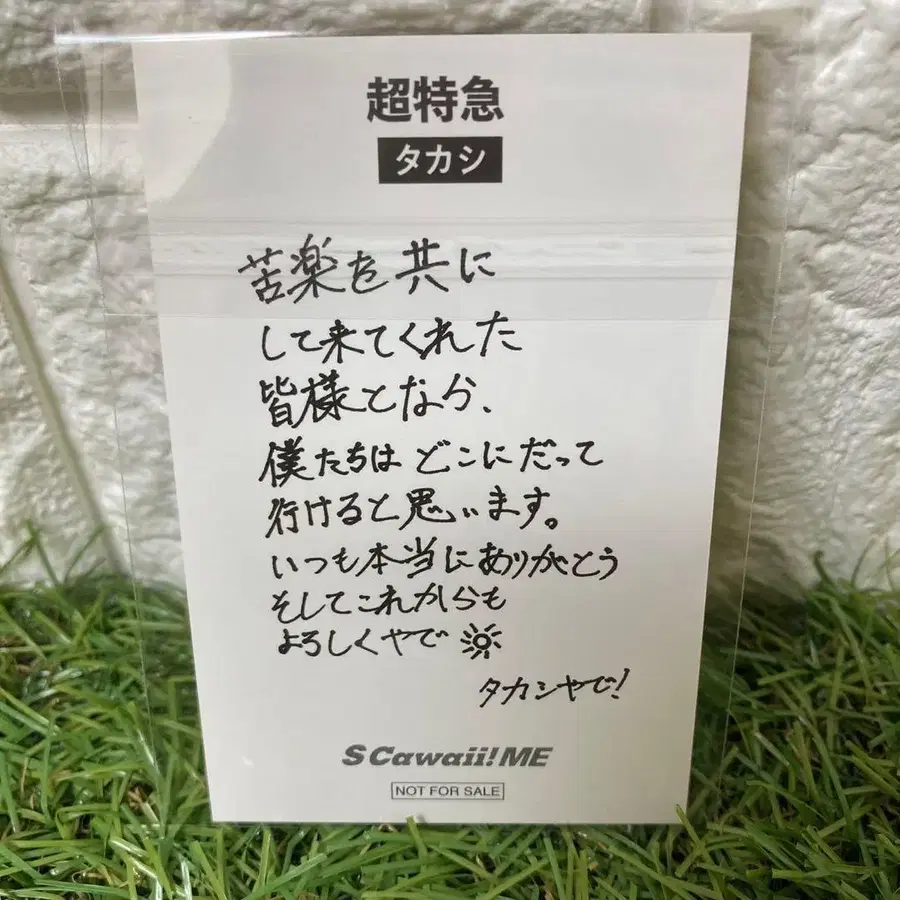 超特急
タカシ
苦楽を共に
して来てくれた
皆様となら、
僕たちはどこにだって
行けると思います。
いつも本当にありがとう
そしてこれからも
よろしくやで
タカシやで!
S Cawaii! ME
NOT FOR SALE